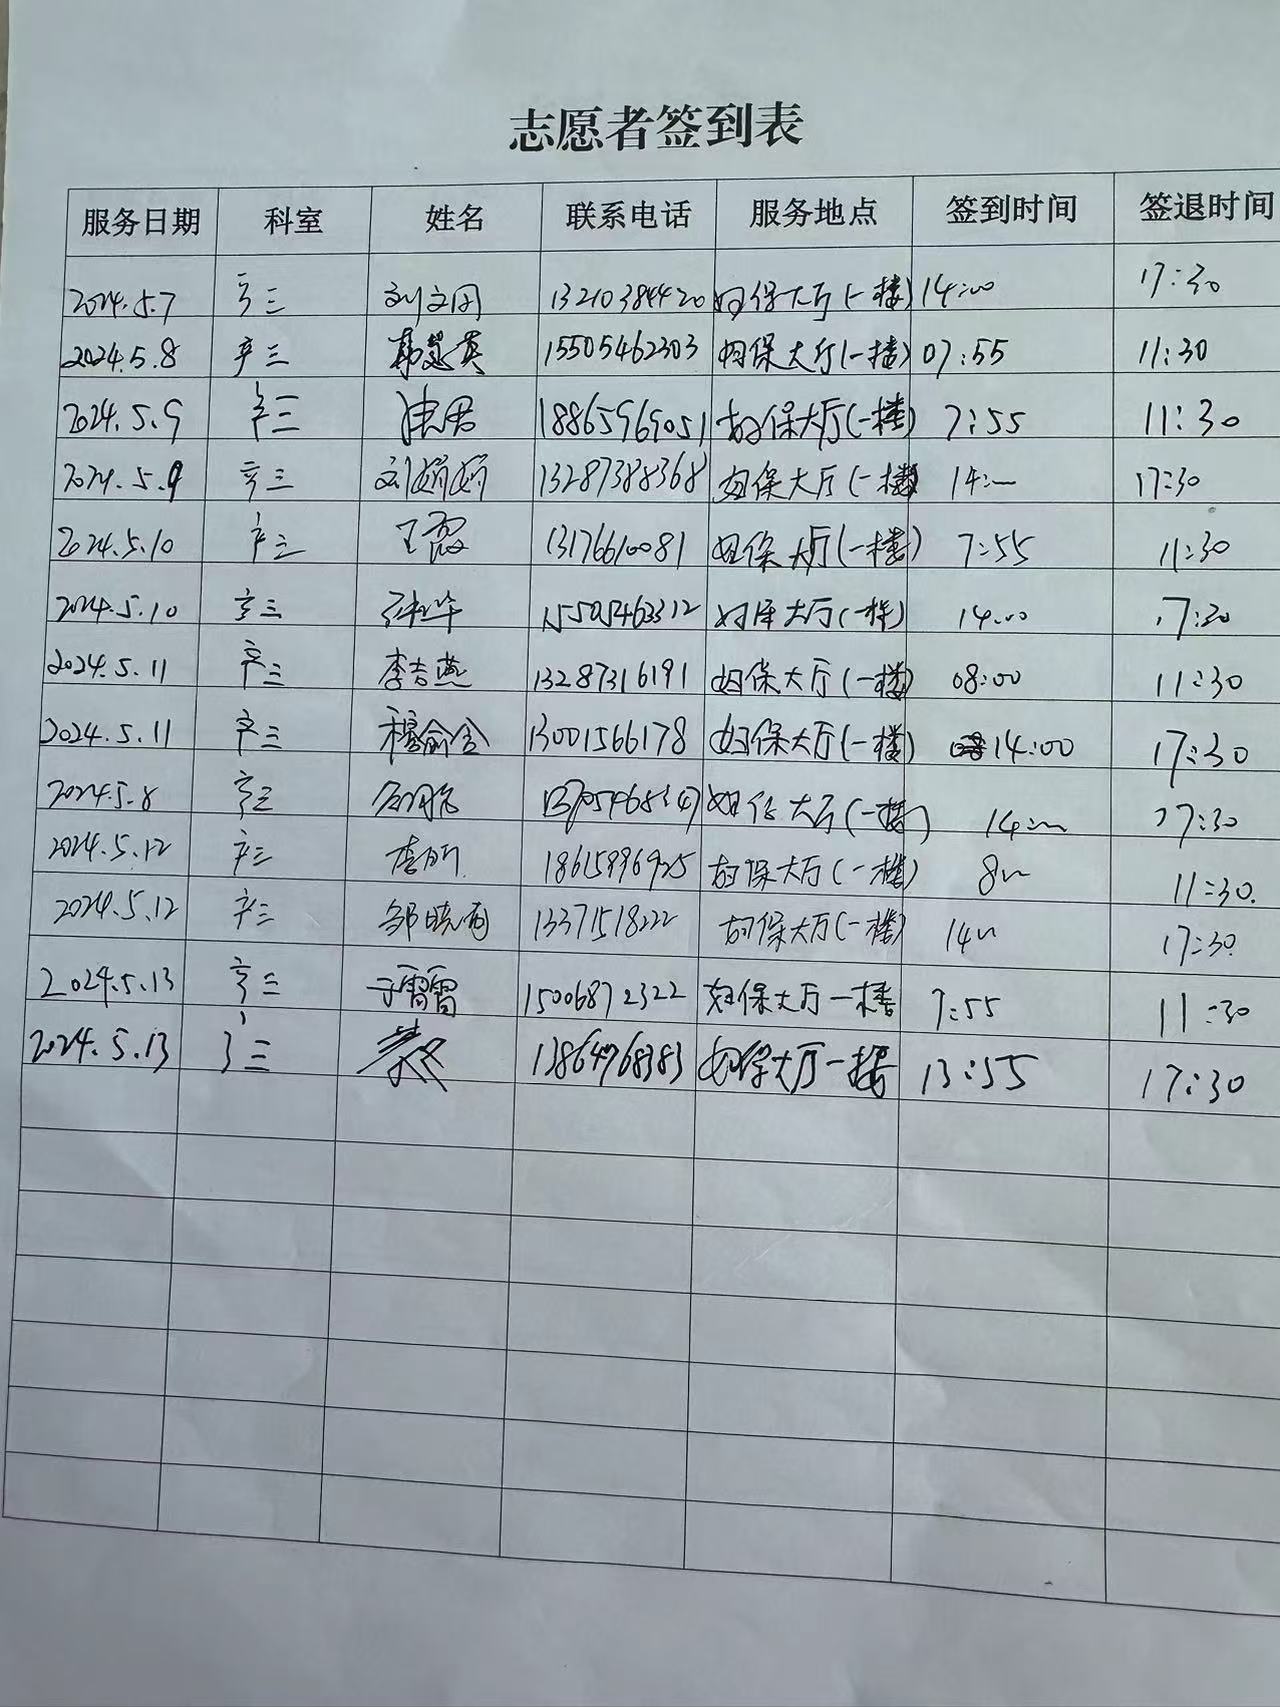 志愿者签到表
服务日期 科室 姓名 联系电话 服务地点 签到时间 签退时间
2024.5.7 产三 刘文国 13210384420 妇保大厅(一楼) 14:00 17:30
2024.5.8 产三 15505462303 妇保大厅(一楼) 07:55 11:30
2024.5.9 产三 18865969051 妇保大厅(一楼) 7:55 11:30
2024.5.9 产三 刘娟娟 13287388368 妇保大厅(一楼) 14:00 17:30
2024.5.10 产三 王霞 13176610081 妇保大厅(一楼) 7:55 11:30
2024.5.10 产三 15505463312 妇保大厅(一楼) 14:00 17:30
2024.5.11 产三 李吉燕 13287316191 妇保大厅(一楼) 08:00 11:30
2024.5.11 产三 13001566178 妇保大厅(一楼) 14:00 17:30
2024.5.8 产三 妇保大厅(一楼) 14:00 17:30
2024.5.12 产三 妇保大厅(一楼) 11:30
2024.5.12 产三 邹晓雨 13371518222 妇保大厅(一楼) 17:30
2024.5.13 产三 于雷雷 15006872322 妇保大厅一楼 7:55 11:30
2024.5.13 产三 13864768383 妇保大厅一楼 13:55 17:30